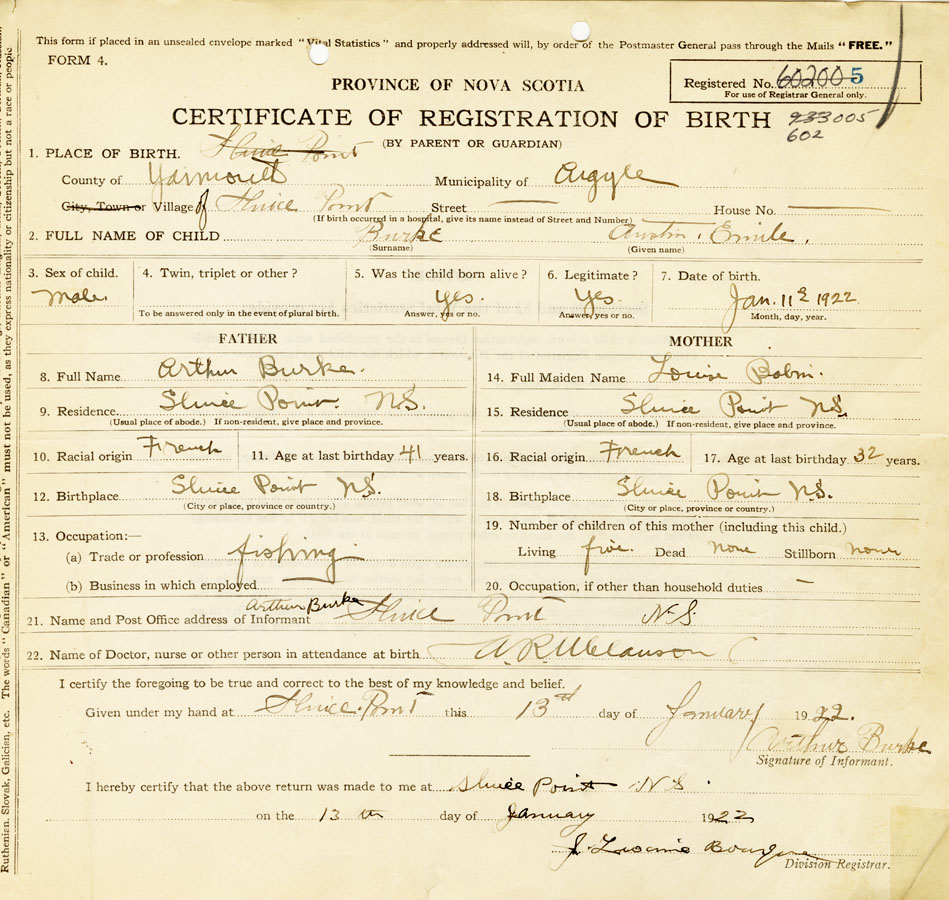 This form if placed in an unsealed envelope marked "Vital Statistics" and properly addressed will, by order of the Postmaster General pass through the Mails "FREE."
FORM 4.
PROVINCE OF NOVA SCOTIA
Registered No. 602005
For use of Registrar General only.
CERTIFICATE OF REGISTRATION OF BIRTH 233005
602
(BY PARENT OR GUARDIAN)
1. PLACE OF BIRTH. Sluice Point
County of Yarmouth Municipality of Argyle
City, Town or Village of Sluice Point Street House No.
(If birth occurred in a hospital, give its name instead of Street and Number)
2. FULL NAME OF CHILD Burke Austin Emile.
(Surname) (Given name)
3. Sex of child. 4. Twin, triplet or other? 5. Was the child born alive? 6. Legitimate? 7. Date of birth.
Male. Yes. Yes. Jan. 11 1922
To be answered only in the event of plural birth. Answer, yes or no. Answer, yes or no. Month, day, year.
FATHER MOTHER
8. Full Name Arthur Burke. 14. Full Maiden Name Louise
9. Residence. Sluice Point. N.S. 15. Residence Sluice Point N.S.
(Usual place of abode.) If non-resident, give place and province. (Usual place of abode.) If non-resident, give place and province.
10. Racial origin French 11. Age at last birthday 41 years. 16. Racial origin French 17. Age at last birthday 32 years.
12. Birthplace Sluice Point N.S. 18. Birthplace Sluice Point N.S.
(City or place, province or country.) (City or place, province or country.)
13. Occupation:— 19. Number of children of this mother (including this child.)
(a) Trade or profession fishing Living five. Dead None Stillborn None
(b) Business in which employed 20. Occupation, if other than household duties –
21. Name and Post Office address of Informant Arthur Burke Sluice Point N.S.
22. Name of Doctor, nurse or other person in attendance at birth A. R. Melanson
I certify the foregoing to be true and correct to the best of my knowledge and belief.
Given under my hand at Sluice Point this 13th day of January 1922.
Arthur Burke
Signature of Informant.
I hereby certify that the above return was made to me at Sluice Point N S
on the 13 th day of January 1922
J.
Division Registrar.
Ruthenian, Slovak, Galician, etc. The words "Canadian" or "American" must not be used, as they express nationality or citizenship but not a race or people